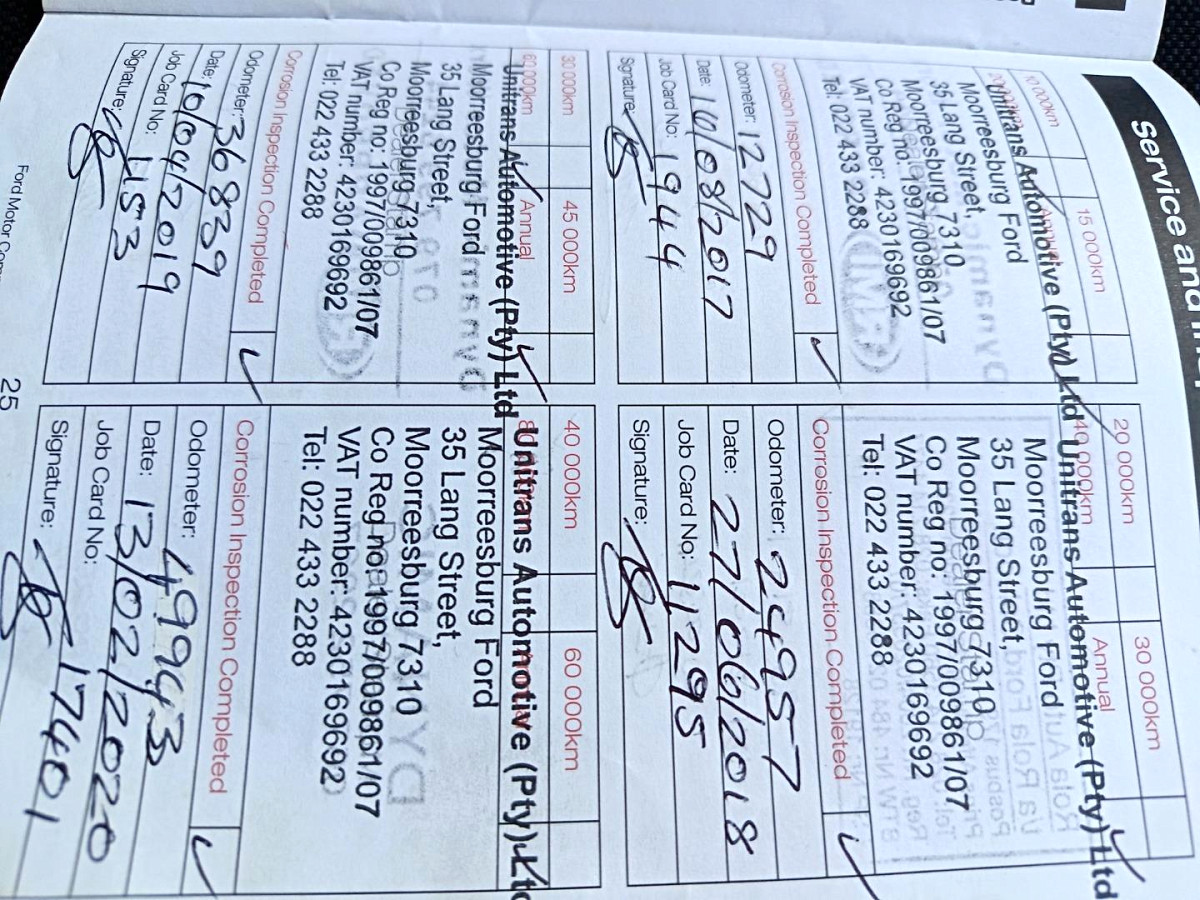 Service and
10 000km
15 000km
Unitrans Automotive (Pty) Ltd
Moorreesburg Ford
35 Lang Street,
Moorreesburg 7310
Co Reg no: 1997/009861/07
VAT number: 4230169692
Tel: 022 433 2288
Corrosion Inspection Completed
Odometer: 12729
Date: 10/08/2017
Job Card No: 1944
Signature:
20 000km
30 000km
40 000km
Annual
Unitrans Automotive (Pty) Ltd
Moorreesburg Ford
35 Lang Street,
Moorreesburg 7310
Co Reg no: 1997/009861/07
VAT number: 4230169692
Tel: 022 433 2288
Corrosion Inspection Completed
Odometer: 24957
Date: 27/06/2018
Job Card No: 11295
Signature:
30 000km
45 000km
60 000km
Annual
Unitrans Automotive (Pty) Ltd
Moorreesburg Ford
35 Lang Street,
Moorreesburg 7310
Co Reg no: 1997/009861/07
VAT number: 4230169692
Tel: 022 433 2288
Corrosion Inspection Completed
Odometer: 36839
Date: 10/04/2019
Job Card No:
Signature:
40 000km
60 000km
Unitrans Automotive (Pty) Ltd
Moorreesburg Ford
35 Lang Street,
Moorreesburg 7310
Co Reg no: 1997/009861/07
VAT number: 4230169692
Tel: 022 433 2288
Corrosion Inspection Completed
Odometer: 49943
Date: 13/02/2020
Job Card No:
Signature: 17401
Ford Motor
25